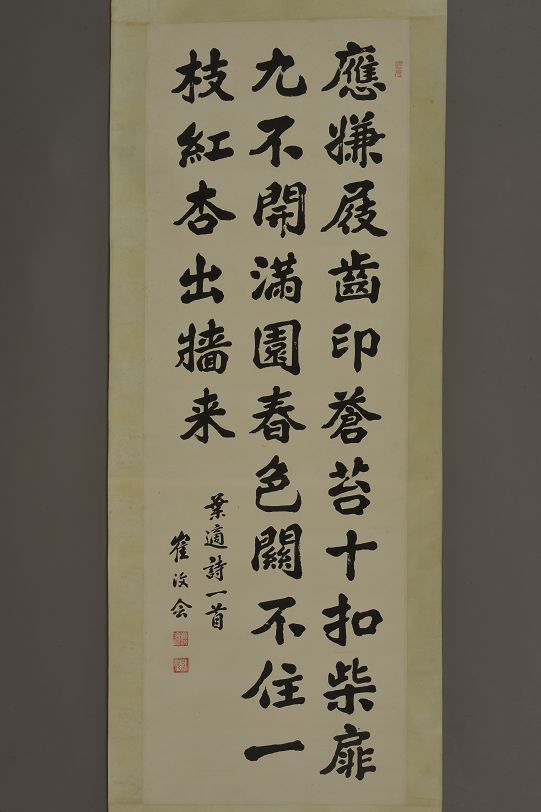 應嫌屐齒印蒼苔十扣柴扉
九不開滿園春色關不住一
枝紅杏出牆来
葉適詩一首
崔汝会